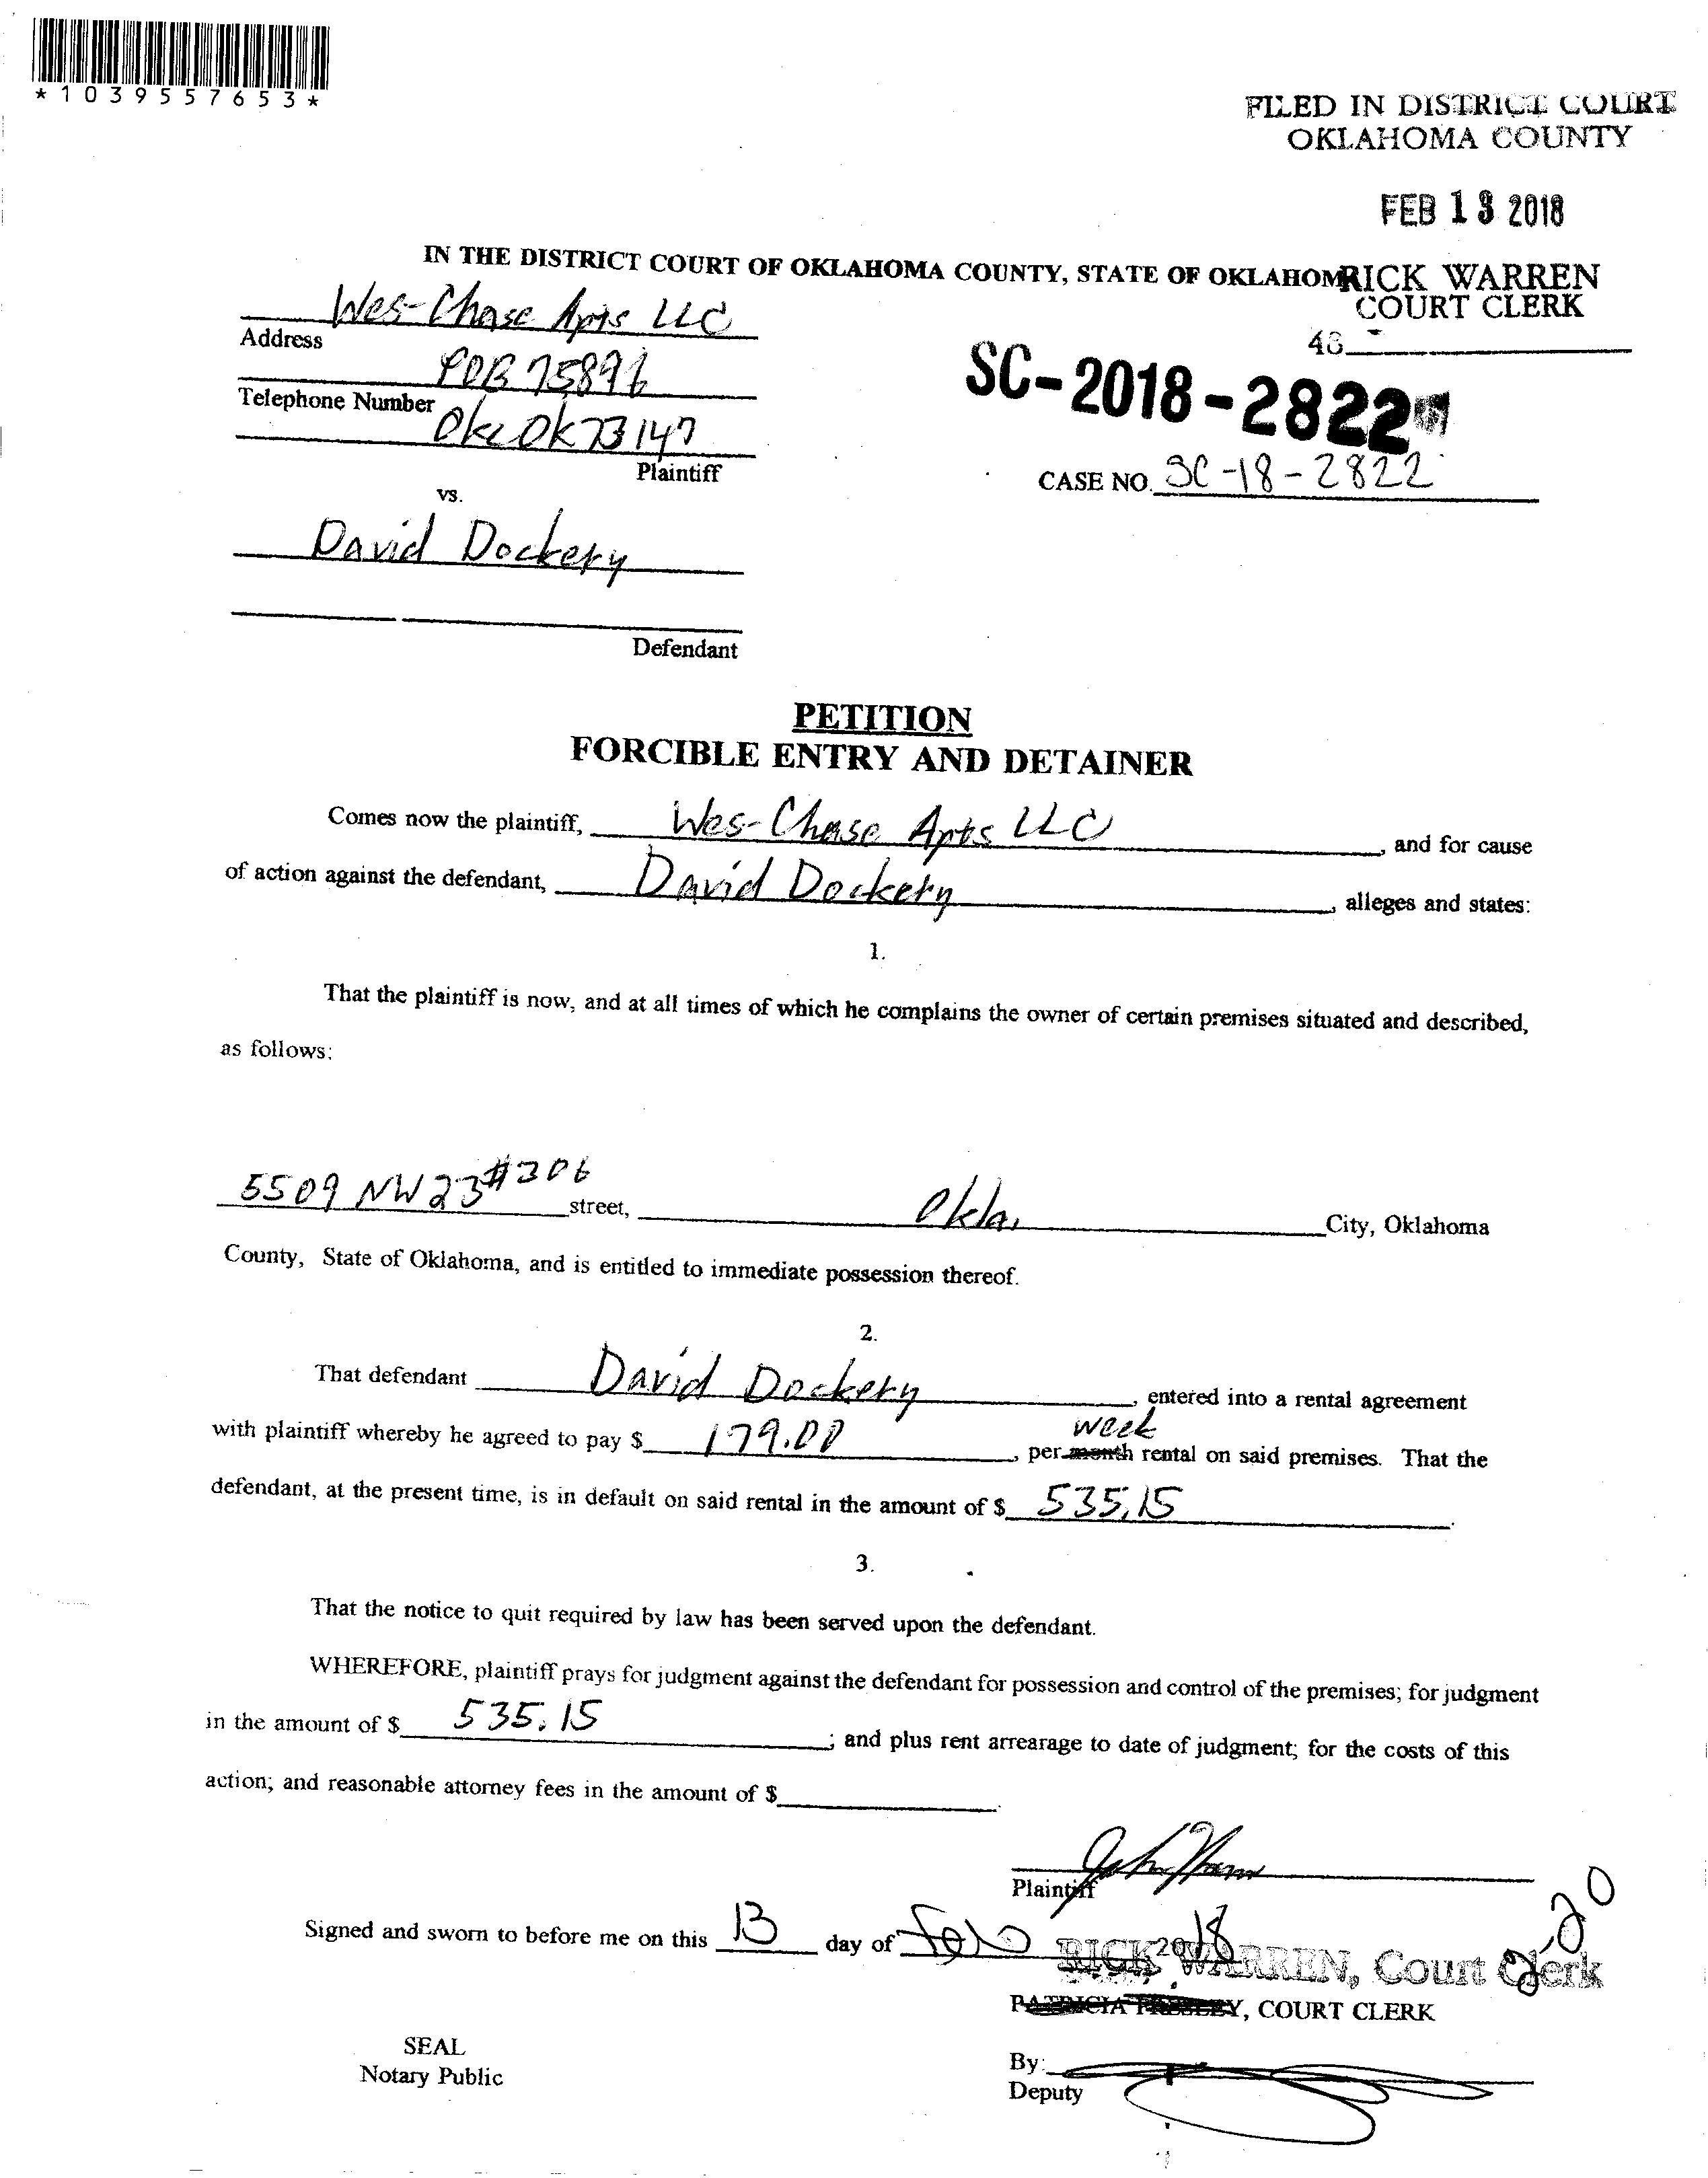 *1039557653*
FILED IN DISTRICT COURT
OKLAHOMA COUNTY
FEB 13 2018
IN THE DISTRICT COURT OF OKLAHOMA COUNTY, STATE OF OKLAHOM
RICK WARREN
COURT CLERK
Wes-Chase Apts LLC
Address
POB 75896
Telephone Number
Okc Ok 73147
Plaintiff
48
SC-2018-2822
CASE NO. SC-18-2822
vs.
David Dockery
Defendant
PETITION
FORCIBLE ENTRY AND DETAINER
Comes now the plaintiff, Wes-Chase Apts LLC, and for cause
of action against the defendant, David Dockery, alleges and states:
1.
That the plaintiff is now, and at all times of which he complains the owner of certain premises situated and described,
as follows:
5509 NW 23 #306 street, Okla. City, Oklahoma
County, State of Oklahoma, and is entitled to immediate possession thereof.
2.
That defendant David Dockery, entered into a rental agreement
week
with plaintiff whereby he agreed to pay $ 179.00, per month rental on said premises. That the
defendant, at the present time, is in default on said rental in the amount of $ 535.15.
3.
That the notice to quit required by law has been served upon the defendant.
WHEREFORE, plaintiff prays for judgment against the defendant for possession and control of the premises; for judgment
in the amount of $ 535.15; and plus rent arrearage to date of judgment; for the costs of this
action; and reasonable attorney fees in the amount of $
Plaintiff
Signed and sworn to before me on this 13 day of Feb, 2018
2-20
RICK WARREN, Court Clerk
PATRICIA PRESLEY, COURT CLERK
SEAL
Notary Public
By:
Deputy